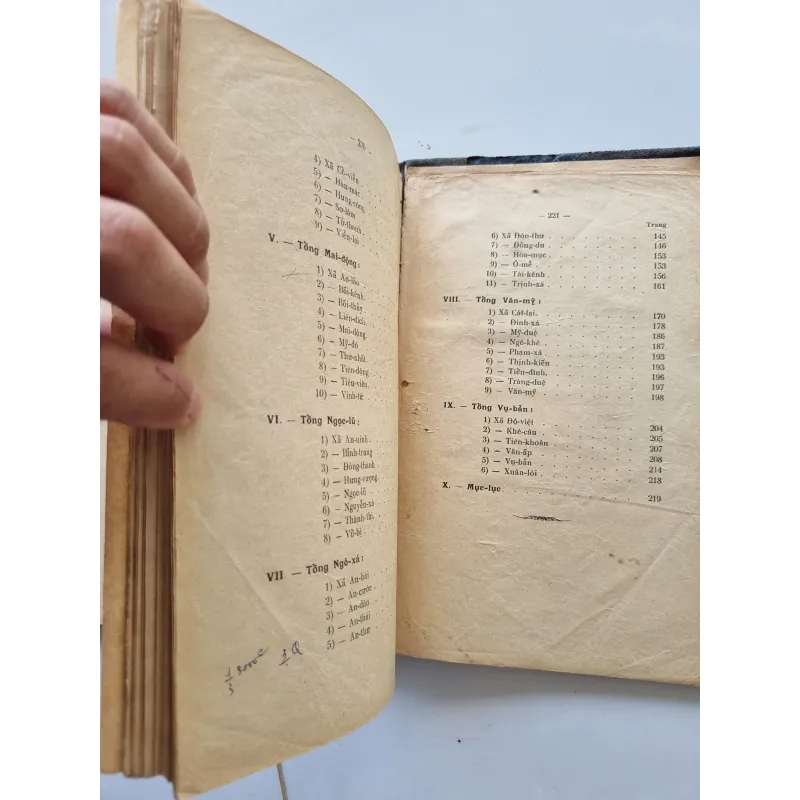 — 220 —
4) Xã
5) — Hòa-mặc
6) — Hưng-công
7) — Sơ-lâm
8) — Tử-thanh
9) — Viễn-lai
V. — Tổng Mai-động :
1) Xã An-lão
2) — Bồi-kênh
3) — Bồi-thủy
4) — Liên-đich
5) — Mai-động
6) — Mỹ-đô
7) — Thư-nhất
8) — Tiên-động
9) — Tiêu-viên
10) — Vĩnh-tứ
VI. — Tổng Ngọc-lũ :
1) Xã An-ninh
2) — Bình-trung
3) — Đông-thành
4) — Hưng-vượng
5) — Ngọc-lũ
6) — Nguyễn-xá
7) — Thành-thi
8) — Vũ-bị
VII — Tổng Ngô-xá :
1) Xã An-bài
2) — An-cước
3) — An-dân
4) — An-thái
5) — An-thư
1/3 Q
— 221 —
Trang
6) Xã Đôn-thư 145
7) — Đồng-du 146
8) — Hòa-mục 153
9) — Ô-mễ 153
10) — Tái-kênh 156
11) — Trịnh-xá 161
VIII. — Tổng Văn-mỹ :
1) Xã Cát-lại 170
2) — Đinh-xá 178
3) — Mỹ-duệ 186
4) — Ngô-khê 187
5) — Phạm-xá 193
6) — Thịnh-kiến 193
7) — Tiền-đinh 196
8) — Tràng-duệ 197
9) — Văn-mỹ 198
IX. — Tổng Vụ-bản :
1) Xã Đô-việt 204
2) — Khê-cầu 205
3) — Tiên-khoán 207
4) — Văn-ấp 208
5) — Vụ-bản 214
6) — Xuân-lôi 218
X. — Mục-lục 219